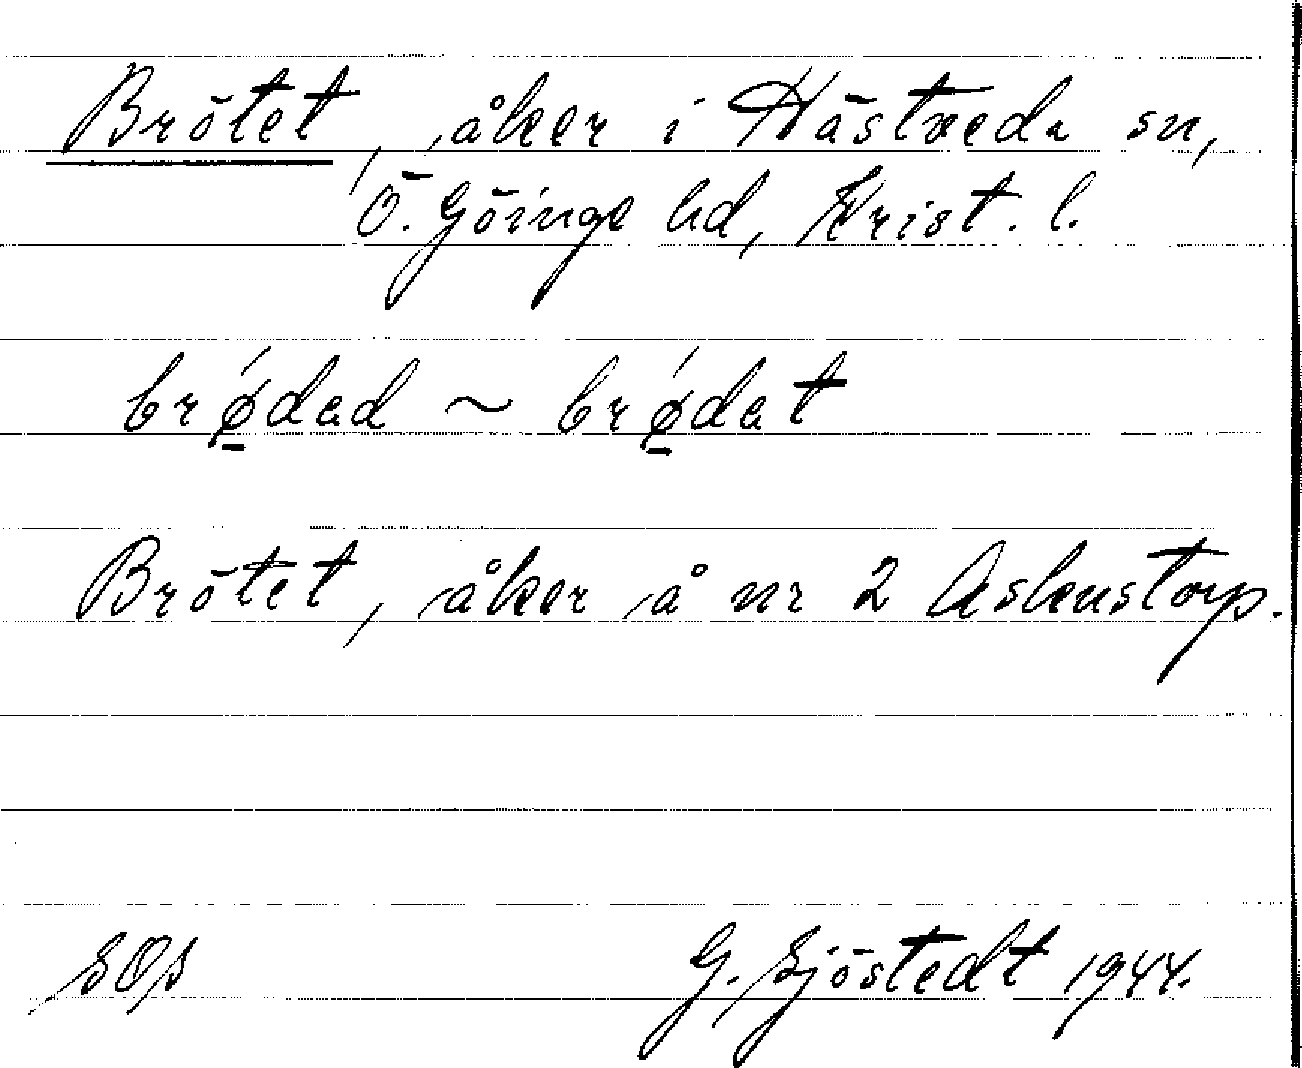 Brötet, åker i Hästveda sn,
Ö. Göinge hd, Krist. l.
brǿ̱dad ~ brǿ̱dat
Brötet, åker å nr 2 Askenstorp.
SOS G. Sjöstedt 1944.